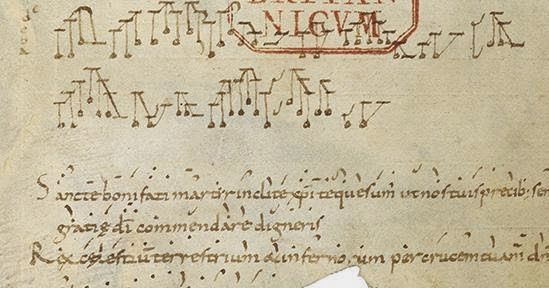 BRITAN
NICVM
Sancte bonifati martir inclite xp̄i te quesum̄ ut nos tuis precib; sem
gratię dī commendare digneris
Rex cęlestiū terrestrium & inferno um per crucem tuam dn